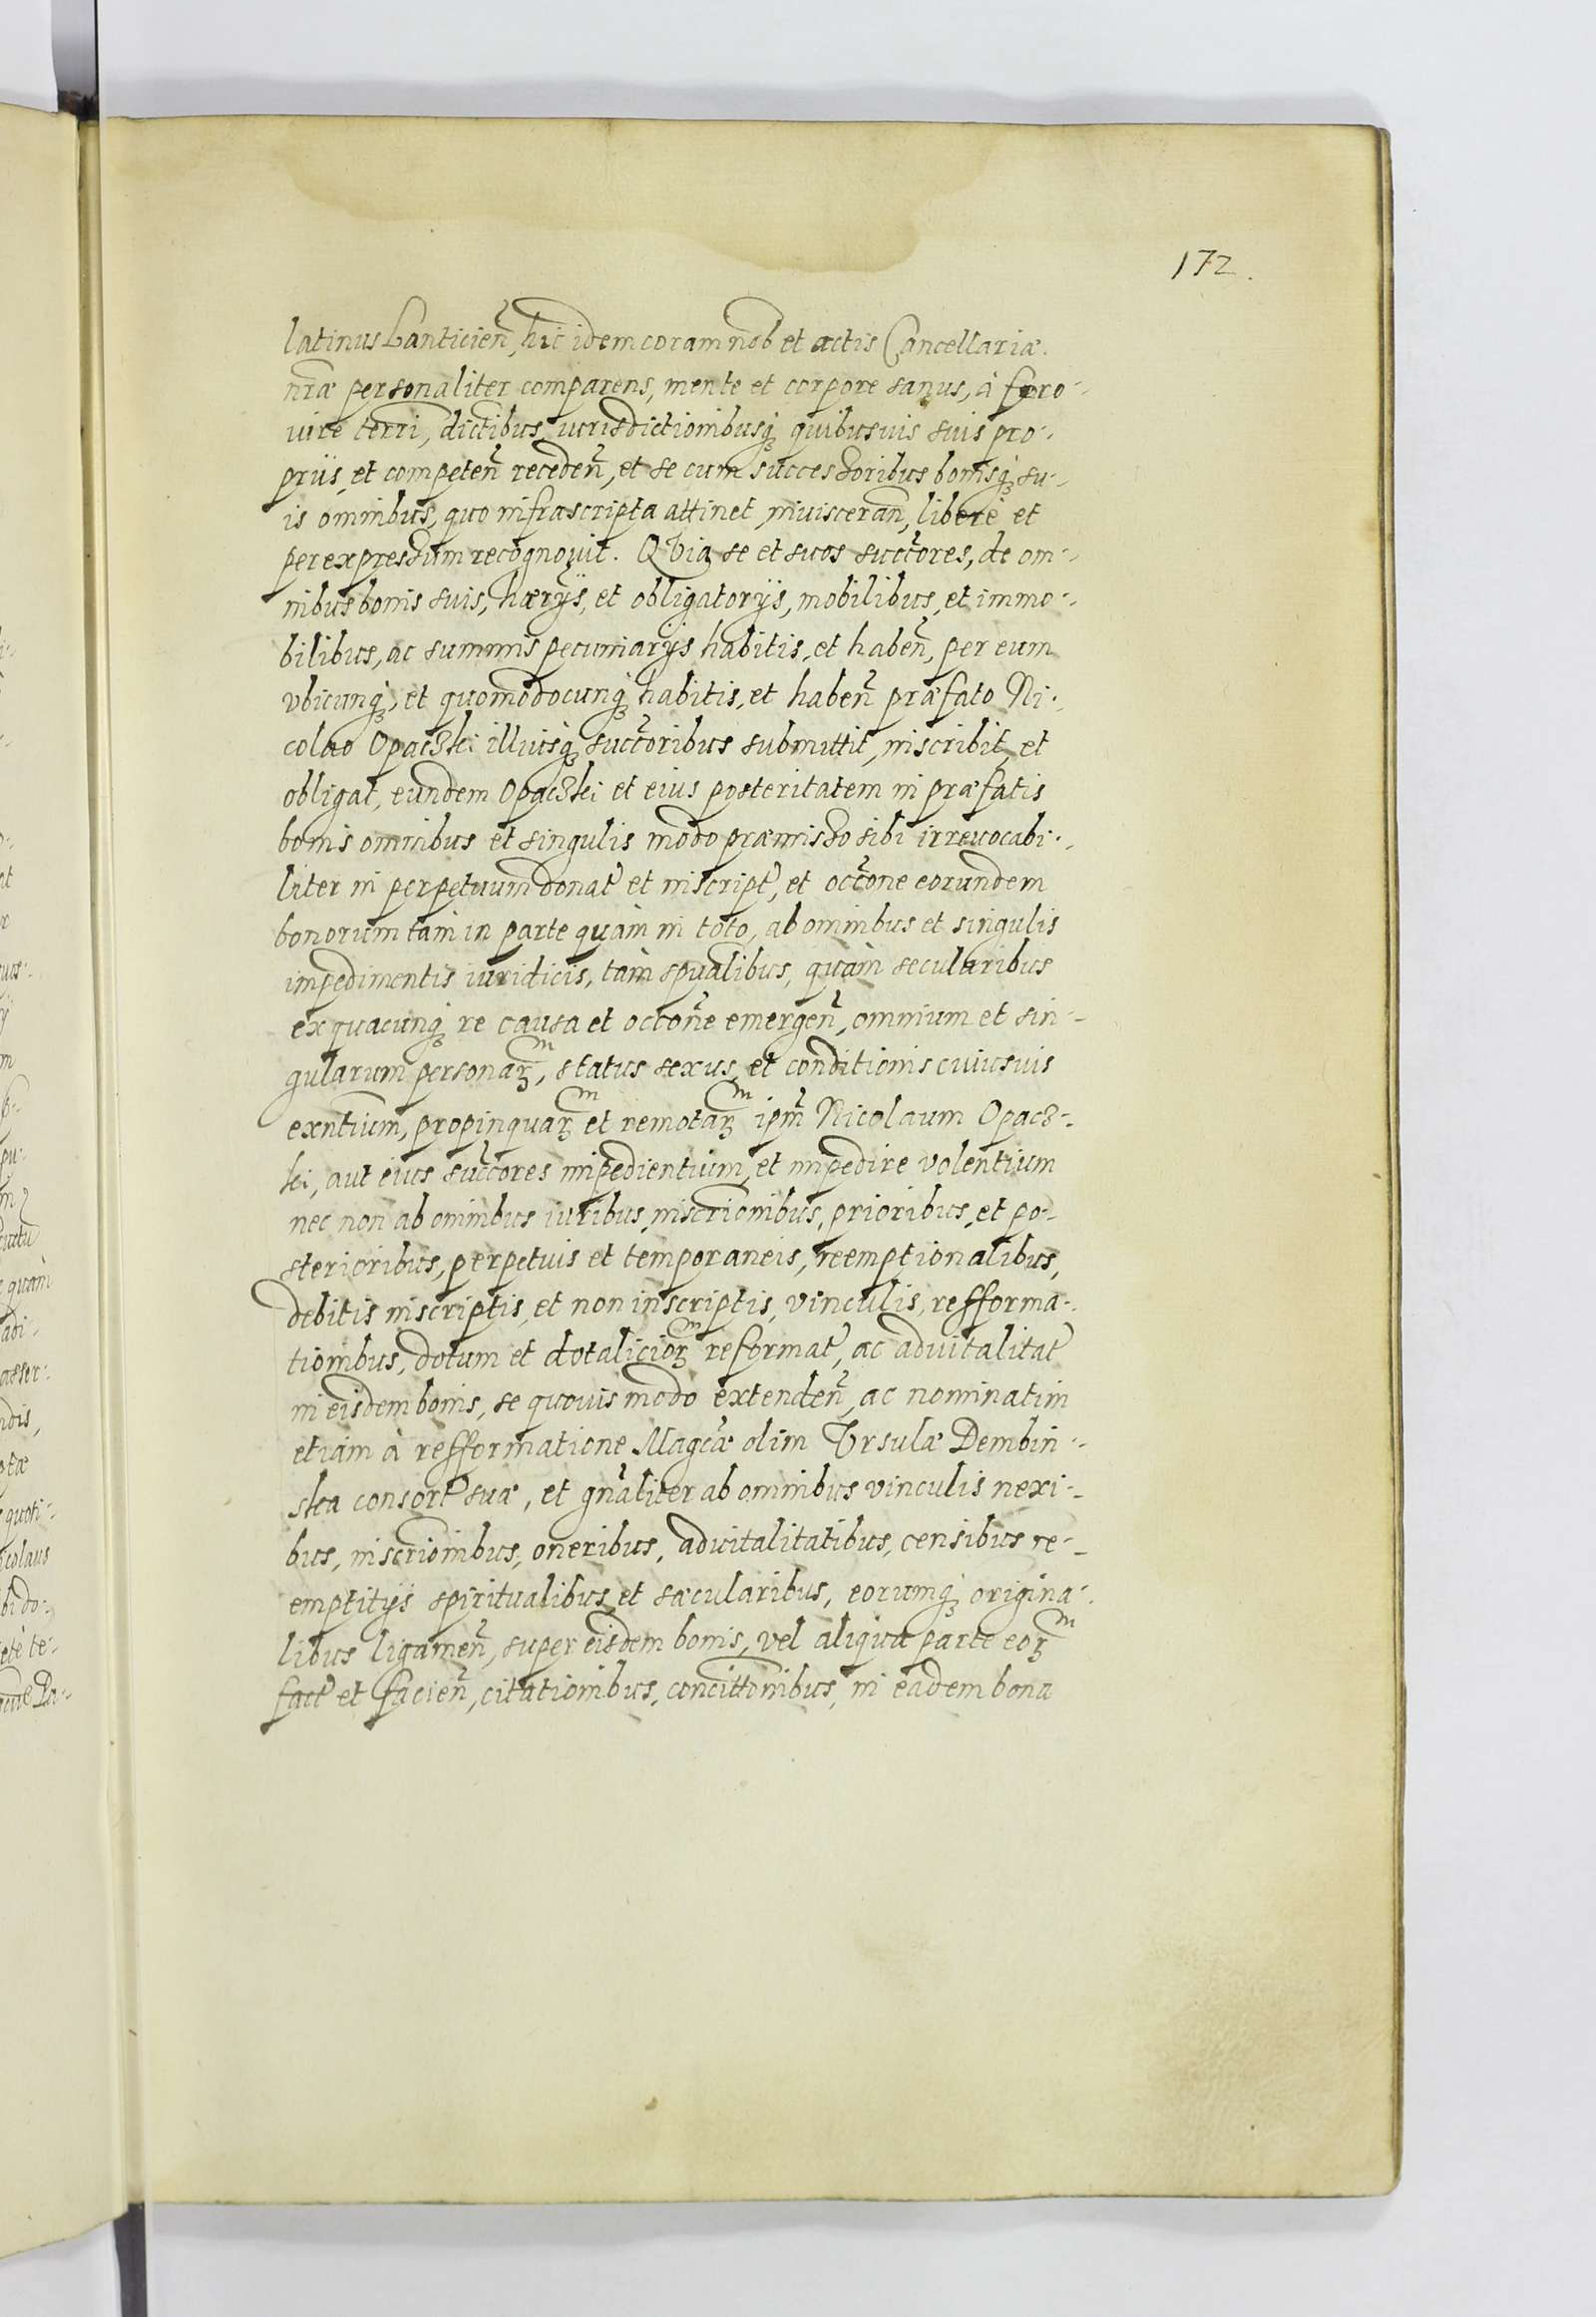 172.
latinus Lanticien̄, hic idem coram nob et actis Cancellariæ
nr̄æ personaliter comparens, mente et corpore sanus, à foro
iure terri, dictibus, iurisdictionibusq; quibusuis suis pro-
prijs, et competen̄ receden̄, et se cum successoribus bonisq; su-
is omnibus, quo infrascripta attinet inuisceran̄, liberè et
per expressum recognouit. QVia se et suos succ̄ores, de om-
nibus bonis suis, hærijs, et obligatorijs, mobilibus, et immo-
bilibus, ac summis pecuniarijs habitis, et haben̄, per eum
vbicunq;, et quomodocunq; habitis, et haben̄ præfato Ni-
colao Opaczki illiusq; succ̄oribus submittit, inscribit, et
obligat, eundem Opaczki et eius posteritatem in præfatis
bonis omnibus et singulis modo præmisso sibi irreuocabi-
liter in perpetuum donat̄ et inscript̄, et occ̄one eorundem
bonorum tàm in parte quàm in toto, ab omnibus et singulis
impedimentis iuridicis, tàm spūalibus, quàm secularibus
ex quacunq; re causa et occōne emergen̄, omnium et sin-
gularum personaꝝ^m, status sexus, et conditionis cuiusuis
exn̄tium, propinquaꝝ^m et remotaꝝ^m ipm̄ Nicolaum Opacz-
ki, aut eius succ̄ores impedientium, et impedire volentium
nec non ab omnibus iuribus, inscrīonibus, prioribus, et po-
sterioribus, perpetuis et temporaneis, reemptionalibus,
debitis inscriptis, et non inscriptis, vinculis, refforma-
tionibus, dotum et dotalicioꝝ^m reformat̄, ac aduitalitat̄
in eisdem bonis, se quouis modo extenden̄, ac nominatim
etiàm à refformatione Magc̄æ olim Vrsulæ Dembin-
ska consort̄ suæ, et gn̄aliter ab omnibus vinculis nexi-
bus, inscrīonibus, oneribus, aduitalitatibus, censibus re-
emptitijs spiritualibus et sæcularibus, eorumq; origina-
libus ligamen̄, super eisdem bonis, vel aliqua parte eoꝝ^m
fact̄ et facien̄, citationibus, concitt̄onibus, in eadem bona